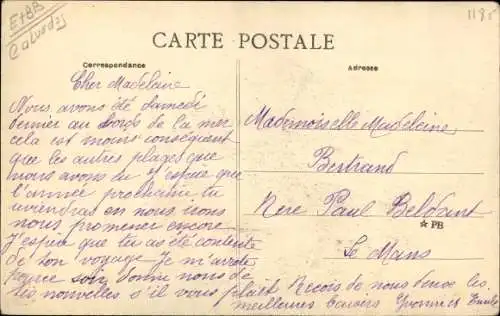 E+BB
Calvados
1185
CARTE POSTALE
Correspondance
Adresse
Cher Madeleine
Nous avons été samedi
dernier au bords de la mer
cela est moins conséquent
que les autres plages que
nous avons vu J'espère que
l'année prochaine tu
viendras et nous irons
nous promener encore
J'espère que tu as été contente
de ton voyage Je m'arrête
pour ce soir donne nous de
tes nouvelles s'il vous plaît Reçois de nous deux les
meilleurs baisers Yvonne et Emile
Mademoiselle Madeleine
Bertrand
Rere Paul Beldant
★ PB
Le Mans